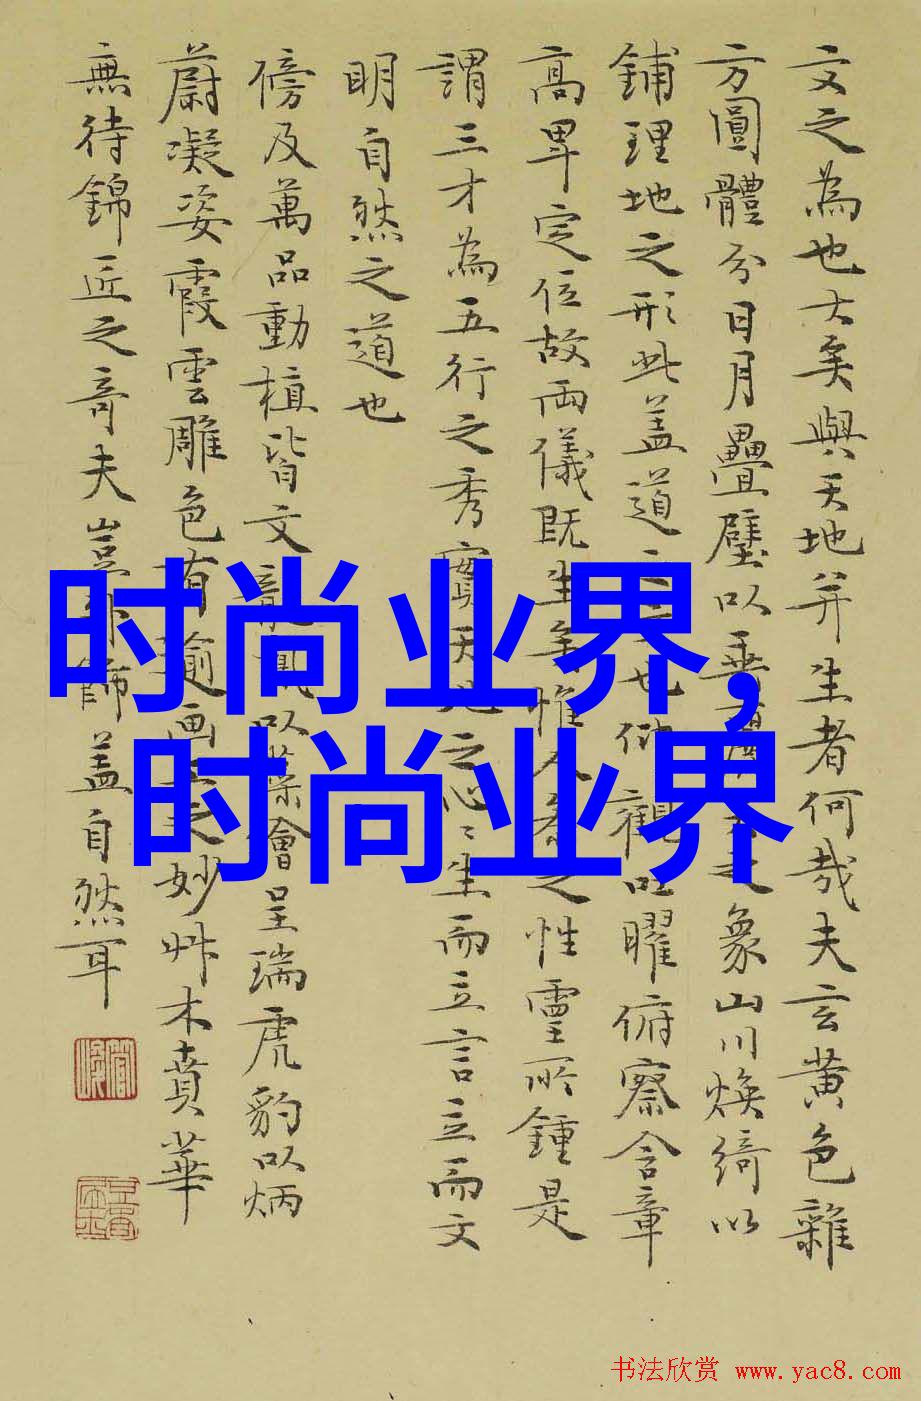 文之為也大矣與天地并生者何哉夫玄黄色雜
方圓體分日月疊壁以垂之象山川煥綺以
鋪理地之形此盖道也仰觀吐曜俯察含章
高卑定位故兩儀既生矣惟人参之性靈所鍾是
謂三才為五行之秀實天地之心〻生而立言立而文
明自然之道也
傍及萬品動植皆文龍鳳以藻會呈瑞虎豹以炳
蔚凝姿霞雲雕色有逾画工之妙艸木賁華
無待錦匠之奇夫豈外飾盖自然耳
时尚业界,
时尚业界
书法欣赏 www.yac8.com